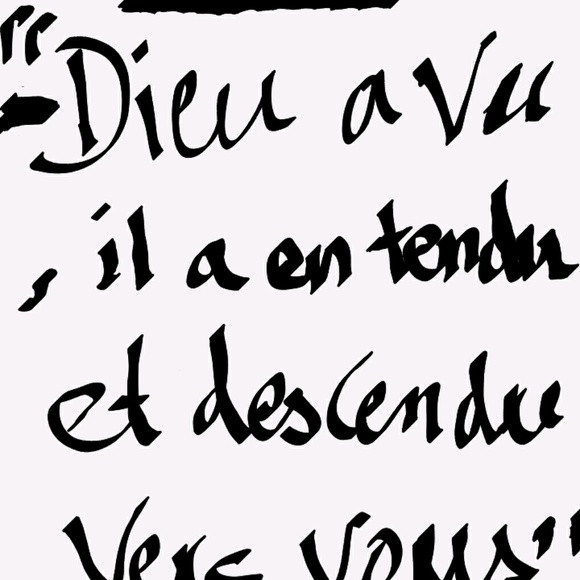 "Dieu a vu
, il a entendu
et descendu
vers vous"